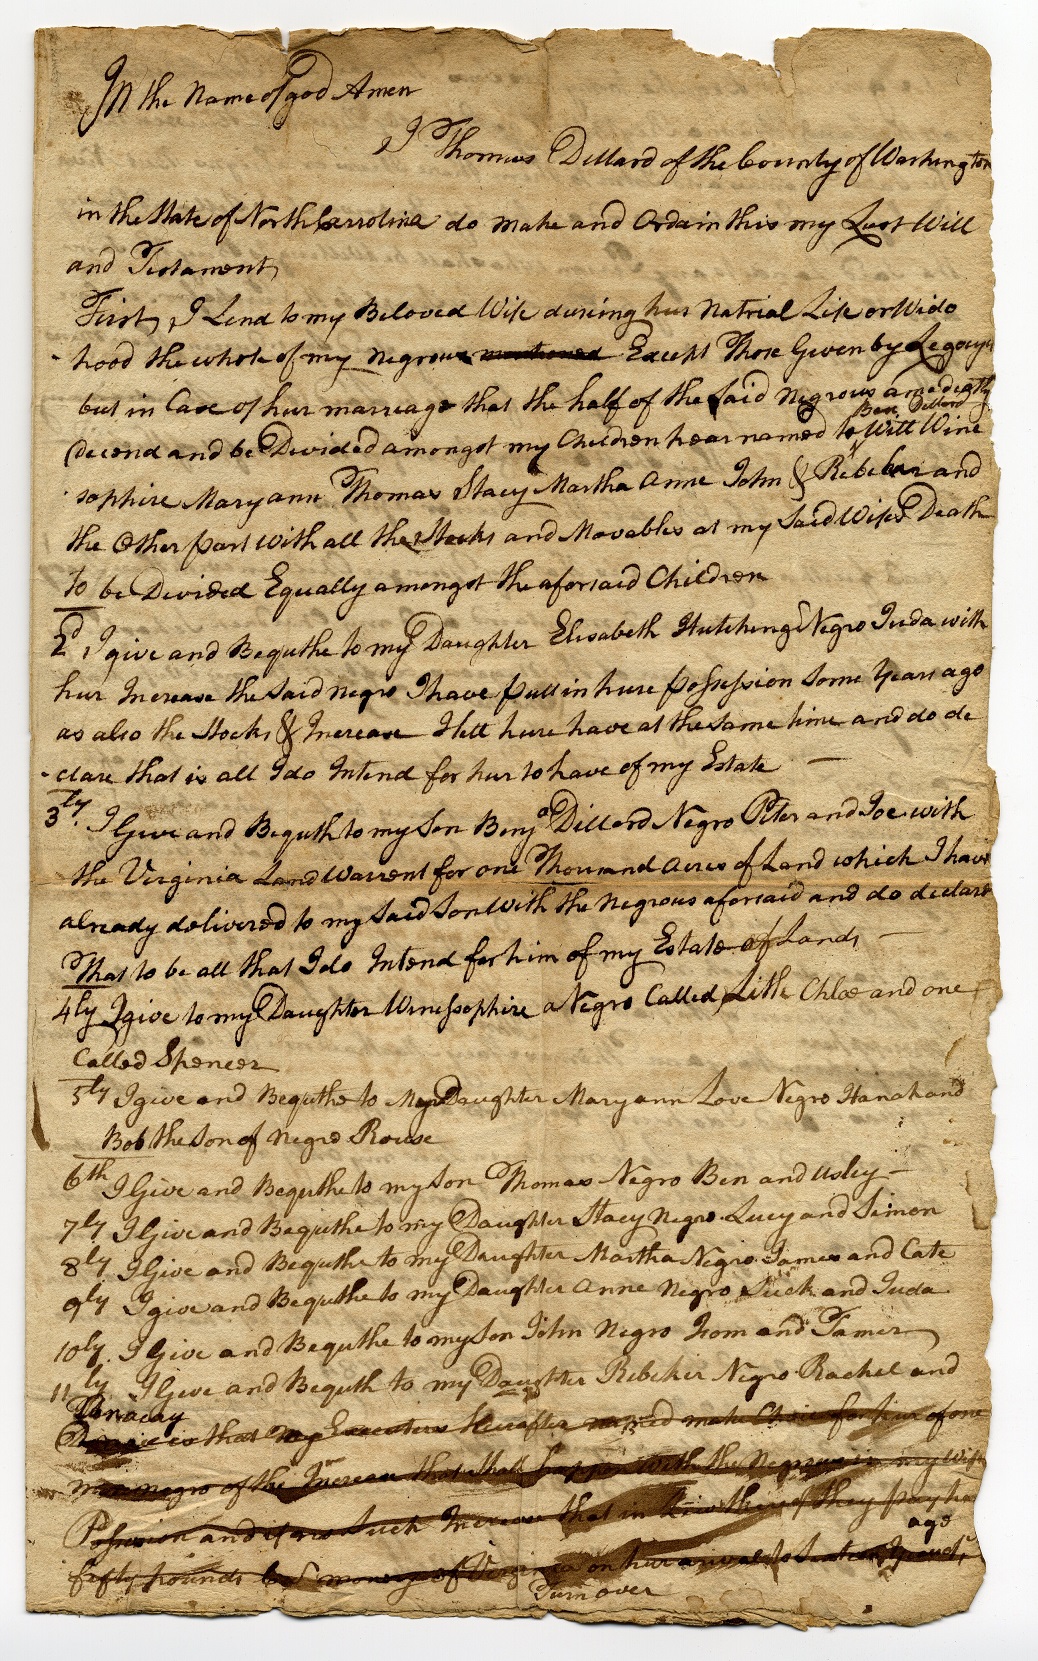 In the Name of god Amen
I Thomas Dillard of the County of Washington
in the State of North Carrolina do make and Ordain this my Last Will
and Testament,
First, I Lend to my Beloved Wife dureing hur Natrial Life or Wido
hood the whole of my Negrous mentioned Except Those Given by Legacys
but in Case of hur marreage that the half of the Said Negrous amedeatly
Benj. Dillard
decend and be Devided amongst my Children hear named to Will Wine
sophire Maryann Thomas Stacy Martha Anne John & Rebekar and
the Other part with all the Stocks and Movables at my Said Wifes Death
to be Devided Equally amongst the aforsaid Children
2d, I give and Bequthe to my Daughter Elisabeth Hutchings Negro Juda with
hur Increase the Said negro I have putt in hure possession Some Years ago
as also the Stocks & Increase I lett hure have at the same time and do de
-clare that is all I do Intend for hur to have of my Estate —
3ly. I Give and Bequth to my Son Benja Dillard Negro Peter and Joe with
the Virginia Land Warrent for one Thousand acres of Land which I have
already delivered to my Said Son with the Negrous aforsaid and do declare
That to be all that I do Intend for him of my Estate of Lands —
4ly I give to my Daughter Winessophire a Negro Called Lith Chloe and one
Called Spencer
5ly I give and Bequthe to my Daughter Maryann Love Negro Hanah and
Bob the Son of Negro Rouse
6th I Give and Bequthe to my Son Thomas Negro Ben and Usley —
7ly I Give and Bequthe to my Daughter Stacy Negro Lucy and Simon
8ly I Give and Bequthe to my Daughter Martha Negro James and Cate
9ly I give and Bequthe to my Daughter Anne Negro Suck and Juda
10ly. I Give and Bequthe to my Son John Negro Isom and Tamer
11ly I Give and Bequth to my Daughter Rebeker Negro Rachel and
is that my Executors hereafter named make Choice for hur of one
negro of the Increase that shall happen with the Negrous in my Wifes
Possession and if no Such Increase that in they pay hur
ago
fifty pounds money of Virginia on hur arival to
Turn over